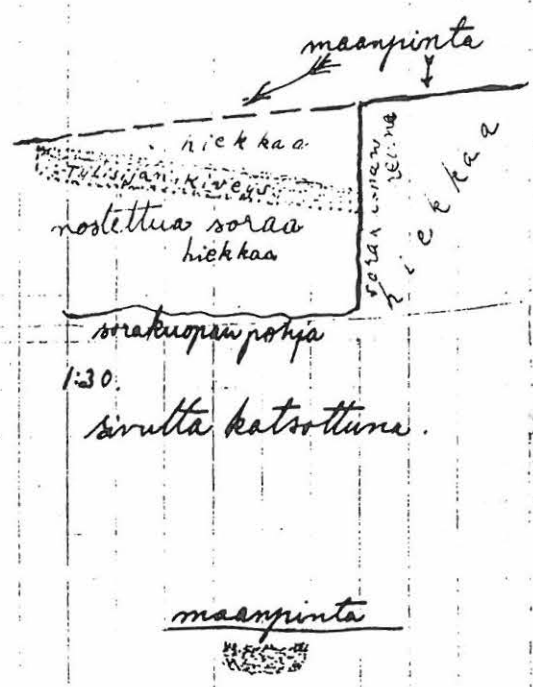 maanpinta
hiekkaa
Tulisijan kiveys
nostettua soraa
hiekkaa
hiekkaa
sorakuopan pohja
1:30.
sivulta katsottuna.
maanpinta